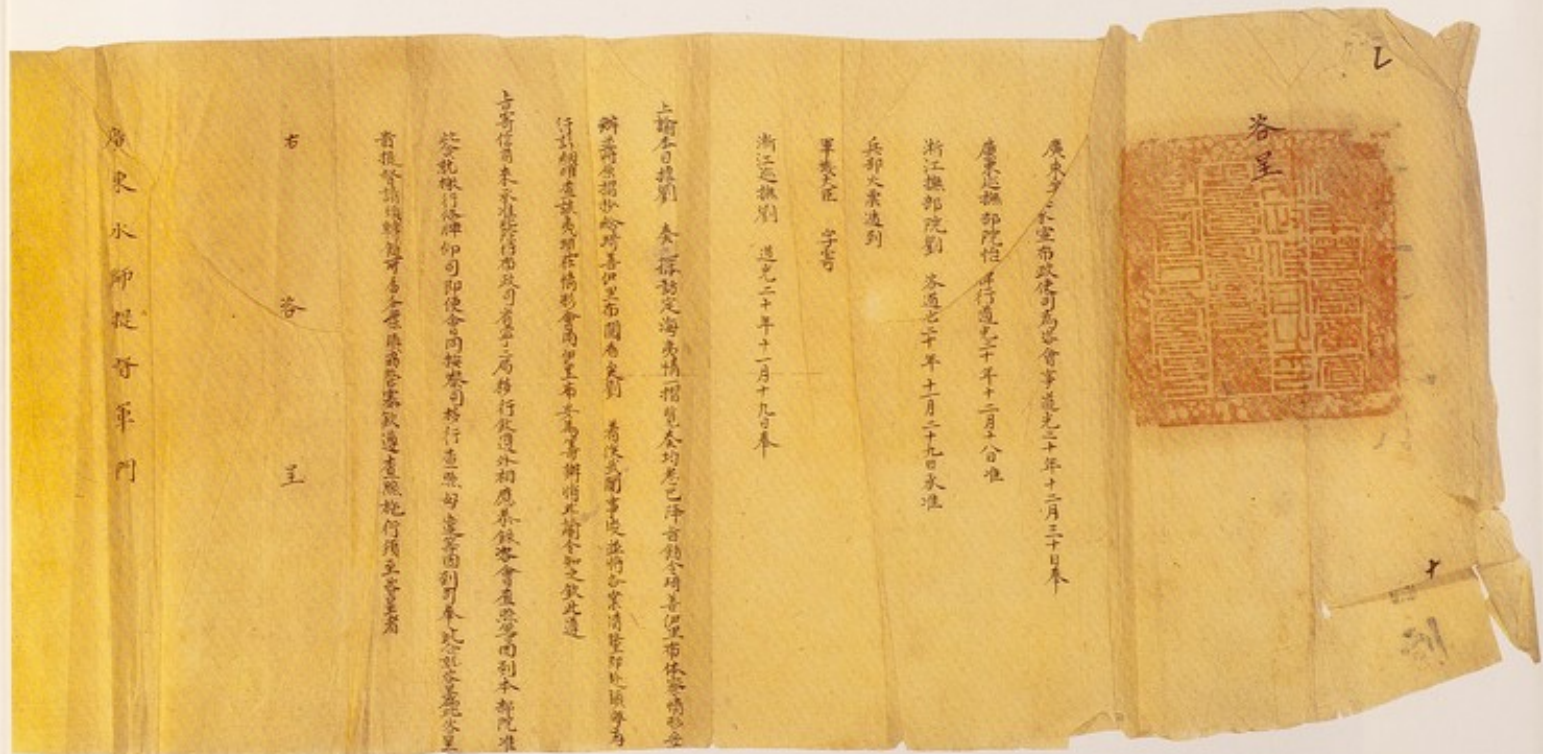 咨呈
廣東承宣布政使司為咨會事道光二十年十二月三十日奉
廣東巡撫部院怡 牌行道光二十年十二月十八日准
浙江撫部院劉 咨道光二十年十一月二十九日承准
兵部火票遞到
軍機大臣 字寄
浙江巡撫劉 道光二十年十一月十九日奉
上諭本日據劉 奏探訪定海夷情一摺覽奏均悉已降旨飭令琦善伊里布体察情形妥
辦並將原摺抄給琦善伊里布閱看矣劉 著俟武闈事竣並將各案清釐即赴鎮海為
行計頒唯查該夷現在情形會同伊里布妥為籌辦將此諭令知之欽此遵
旨寄信前來承准此除行布政司省會二局移行欽遵外相應恭錄咨會查照等因到本部院准
此合就檄行備牌仰司即便會同按察司移行查照毋違等因到司奉此合就咨呈為此咨呈
貴提督請煩轉飭所屬各一體欽遵查照施行須至咨呈者
右 咨 呈
廣東水師提督軍門